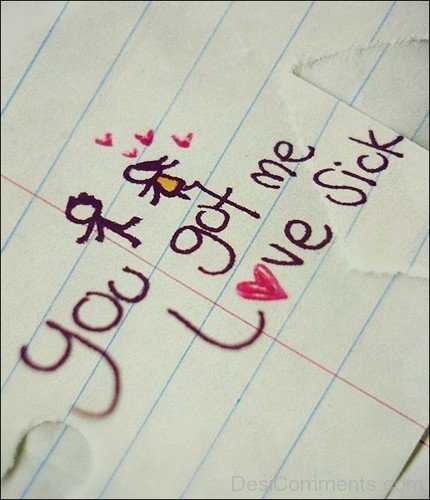 you got me
Love Sick
DesiComments.com